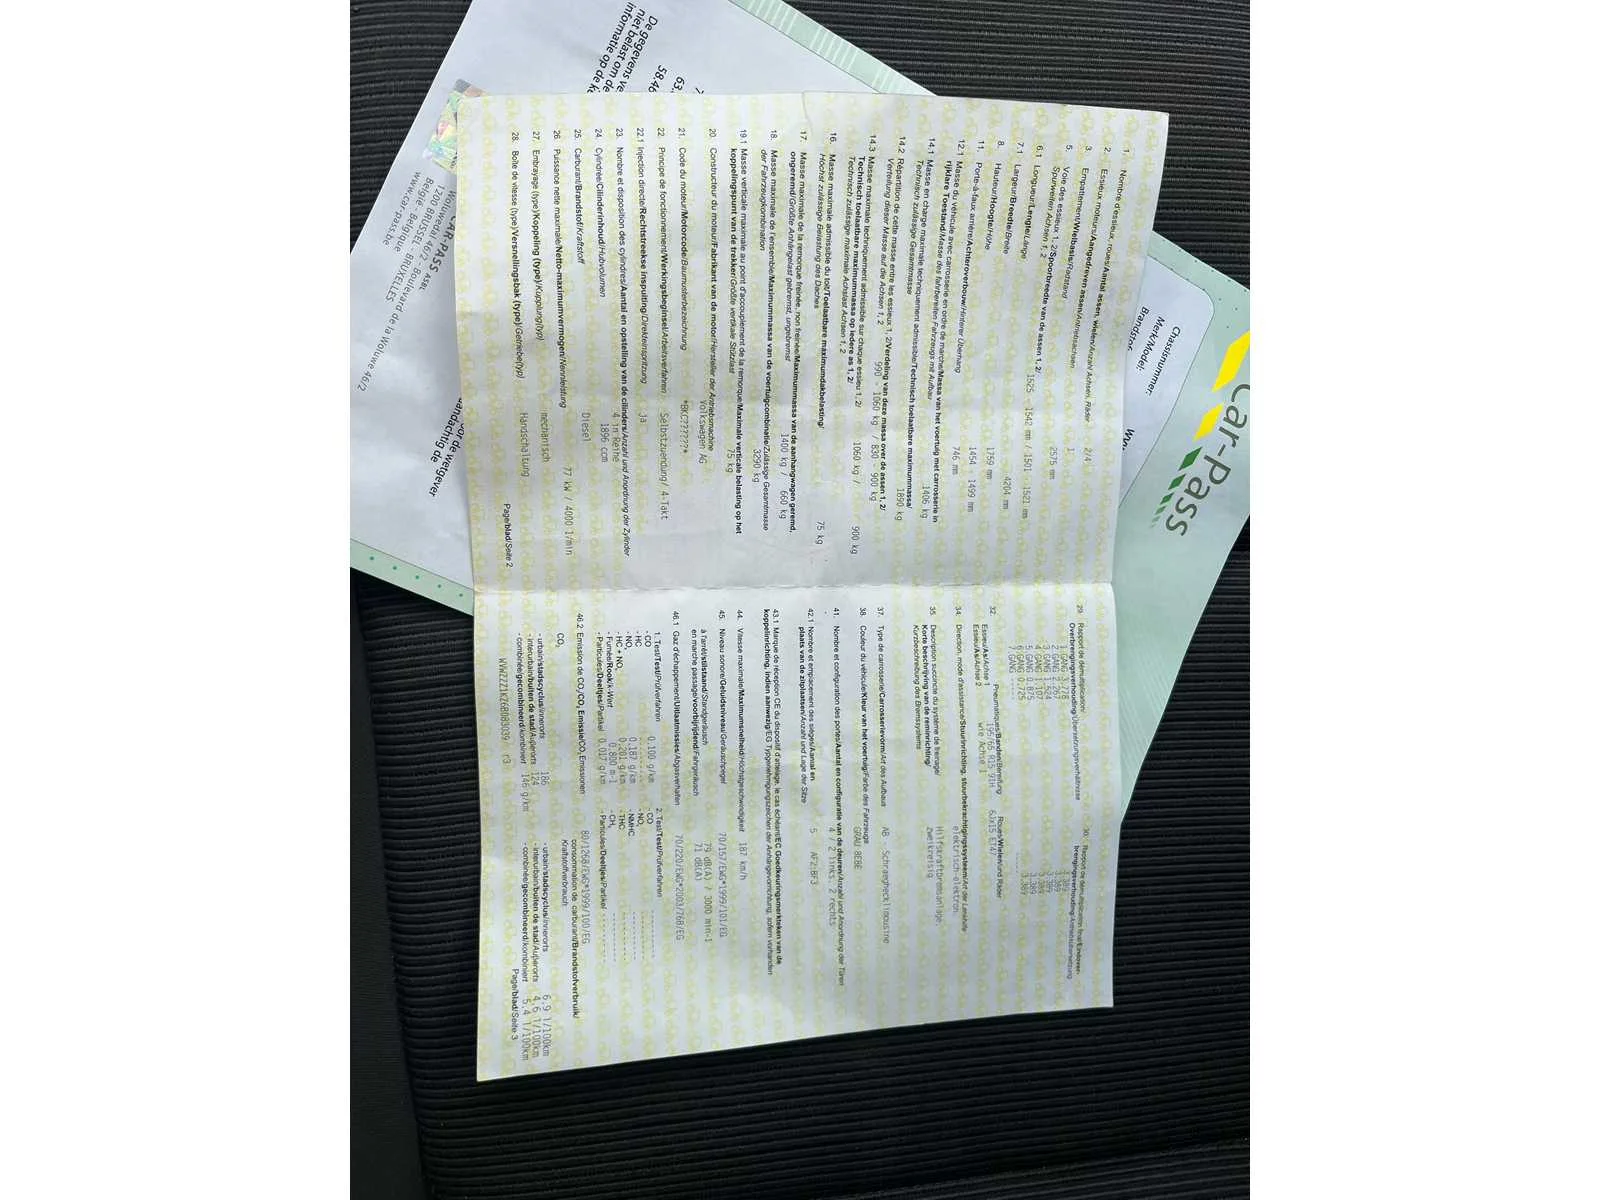 1. Nombre d'essieux, roues/Aantal assen, wielen/Anzahl Achsen, Räder 2/4
2. Essieux moteurs/Aangedreven assen/Antriebsachsen 1
3. Empattement/Wielbasis/Radstand 2575 mm
5. Voie des essieux 1, 2/Spoorbreedte van de assen 1, 2/
Spurweiten Achsen 1, 2 1525 - 1542 mm / 1501 - 1521 mm
6.1 Longueur/Lengte/Länge 4204 mm
7.1 Largeur/Breedte/Breite 1759 mm
8. Hauteur/Hoogte/Höhe 1454 - 1499 mm
11. Porte-à-faux arrière/Achteroverbouw/Hinterer Überhang 746 mm
12.1 Masse du véhicule avec carrosserie en ordre de marche/Massa van het voertuig met carrosserie in
rijklare Toestand/Masse des fahrbereiten Fahrzeugs mit Aufbau 1406 kg
14.1 Masse en charge maximale techniquement admissible/Technisch toelaatbare maximummassa/
Technisch zulässige Gesamtmasse 1890 kg
14.2 Répartition de cette masse entre les essieux 1, 2/Verdeling van deze massa over de assen 1, 2/
Verteilung dieser Masse auf die Achsen 1, 2 990 - 1060 kg / 830 - 900 kg
14.3 Masse maximale techniquement admissible sur chaque essieu 1, 2/
Technisch toelaatbare maximummassa op iedere as 1, 2/
Technisch zulässige maximale Achslast Achsen 1, 2 1060 kg / 900 kg
16. Masse maximale admissible du toit/Toelaatbare maximumdakbelasting/
Höchst zulässige Belastung des Daches 75 kg
17. Masse maximale de la remorque freinée, non freinée/Maximummassa van de aanhangwagen geremd,
ongeremd/Größte Anhängelast gebremst, ungebremst 1400 kg / 660 kg
18. Masse maximale de l'ensemble/Maximummassa van de voertuigcombinatie/Zulässige Gesamtmasse
der Fahrzeugkombination 3290 kg
19.1 Masse verticale maximale au point d'accouplement de la remorque/Maximale verticale belasting op het
koppelingspunt van de trekker/Größte vertikale Stützlast 75 kg
20. Constructeur du moteur/Fabrikant van de motor/Hersteller der Antriebsmachine Volkswagen AG
21. Code du moteur/Motorcode/Baumusterbezeichnung *BKC??????*
22. Principe de fonctionnement/Werkingsbeginsel/Arbeitsverfahren Selbstzuendung/ 4-Takt
22.1 Injection directe/Rechtstreekse inspuiting/Direkteinspritzung ja
23. Nombre et disposition des cylindres/Aantal en opstelling van de cilinders/Anzahl und Anordnung der Zylinder
4 in Reihe
24. Cylindrée/Cilinderinhoud/Hubvolumen 1896 ccm
25. Carburant/Brandstof/Kraftstoff Diesel
26. Puissance nette maximale/Netto-maximumvermogen/Nennleistung 77 kW / 4000 1/min
27. Embrayage (type)/Koppeling (type)/Kupplung(typ) mechanisch
28. Boîte de vitesse (type)/Versnellingsbak (type)/Getriebe(typ) Handschaltung
Page/blad/Seite 2
29. Rapport de démultiplication/
Overbrengingsverhouding/Übersetzungsverhältnisse
1 GANG 3.778
2 GANG 2.267
3 GANG 1.524
4 GANG 1.107
5 GANG 0.875
6 GANG 0.725
7 GANG -----
30. Rapport de démultiplication final/Eindover-
brengingsverhouding/Antriebsübersetzung
3.389
3.389
3.389
3.389
3.389
3.389
-----
32. Pneumatiques/Banden/Bereifung Roues/Wielen/und Räder
Essieu/As/Achse 1 195/65 R15 91H 6JX15 ET47
Essieu/As/Achse 2 wie Achse 1
34. Direction, mode d'assistance/Stuurinrichting, stuurbekrachtigingssysteem/Art der Lenkhilfe
elektrisch-elektron.
35. Description succincte du système de freinage/
Korte beschrijving van de reminrichting/
Kurzbeschreibung des Bremssystems
Hilfskraftbremsanlage,
zweikreisig
37. Type de carrosserie/Carrosserievorm/Art des Aufbaus AB - Schraeghecklimousine
38. Couleur du véhicule/Kleur van het voertuig/Farbe des Fahrzeugs GRAU 8EBE
41. Nombre et configuration des portes/Aantal en configuratie van de deuren/Anzahl und Anordnung der Türen
4 / 2 links, 2 rechts
42.1 Nombre et emplacement des sièges/Aantal en
plaats van de zitplaatsen/Anzahl und Lage der Sitze 5 AF2;BF3
43.1 Marque de réception CE du dispositif d'attelage, le cas échéant/EC Goedkeuringsmerkteken van de
koppelinrichting, indien aanwezig/EG Typgenehmigungszeichen der Anhängevorrichtung, sofern vorhanden
44. Vitesse maximale/Maximumsnelheid/Höchstgeschwindigkeit 187 km/h
45. Niveau sonore/Geluidsniveau/Geräuschpegel 70/157/EWG*1999/101/EG
à l'arrêt/stilstaand/Standgeräusch 79 dB(A) / 3000 min-1
en marche passage/voorbijrijdend/Fahrgeräusch 71 dB(A)
46.1 Gaz d'échappement/Uitlaatmissies/Abgasverhalten 70/220/EWG*2003/76B/EG
1. Test/Test/Prüfverfahren
- CO 0.100 g/km
- HC
- NOx 0.187 g/km
- HC + NOx 0.201 g/km
- Fumée/Rook/k-Wert 0.800 m-1
- Particules/Deeltjes/Partikel 0.017 g/km
2. Test/Test/Prüfverfahren
- CO
- NOx
- NMHC
- THC
- CH4
- Particules/Deeltjes/Partikel
46.2 Emission de CO2/CO2 Emissie/CO2 Emissionen 80/1268/EWG*1999/100/EG
consommation de carburant/Brandstofverbruik/
Kraftstoffverbrauch
CO2
- urbain/stadscyclus/innerorts 186
- interurbain/buiten de stad/Außerorts 124
- combinée/gecombineerd/kombiniert 146 g/km
- urbain/stadscyclus/innerorts 6,9 l/100km
- interurbain/buiten de stad/Außerorts 4,6 l/100km
- combinée/gecombineerd/kombiniert 5,4 l/100km
WVWZZZ1KZ6B083039 r3
Page/blad/Seite 3
car-Pass
Chassisnummer:
Merk/Model:
De gegevens
niet belast om de
informatie op de
CAR-PASS
1200 BRUSSEL - BRUXELLES
België - Belgique
www.car-pass.be
Boulevard de la Woluwe 46/2
door de wetgever